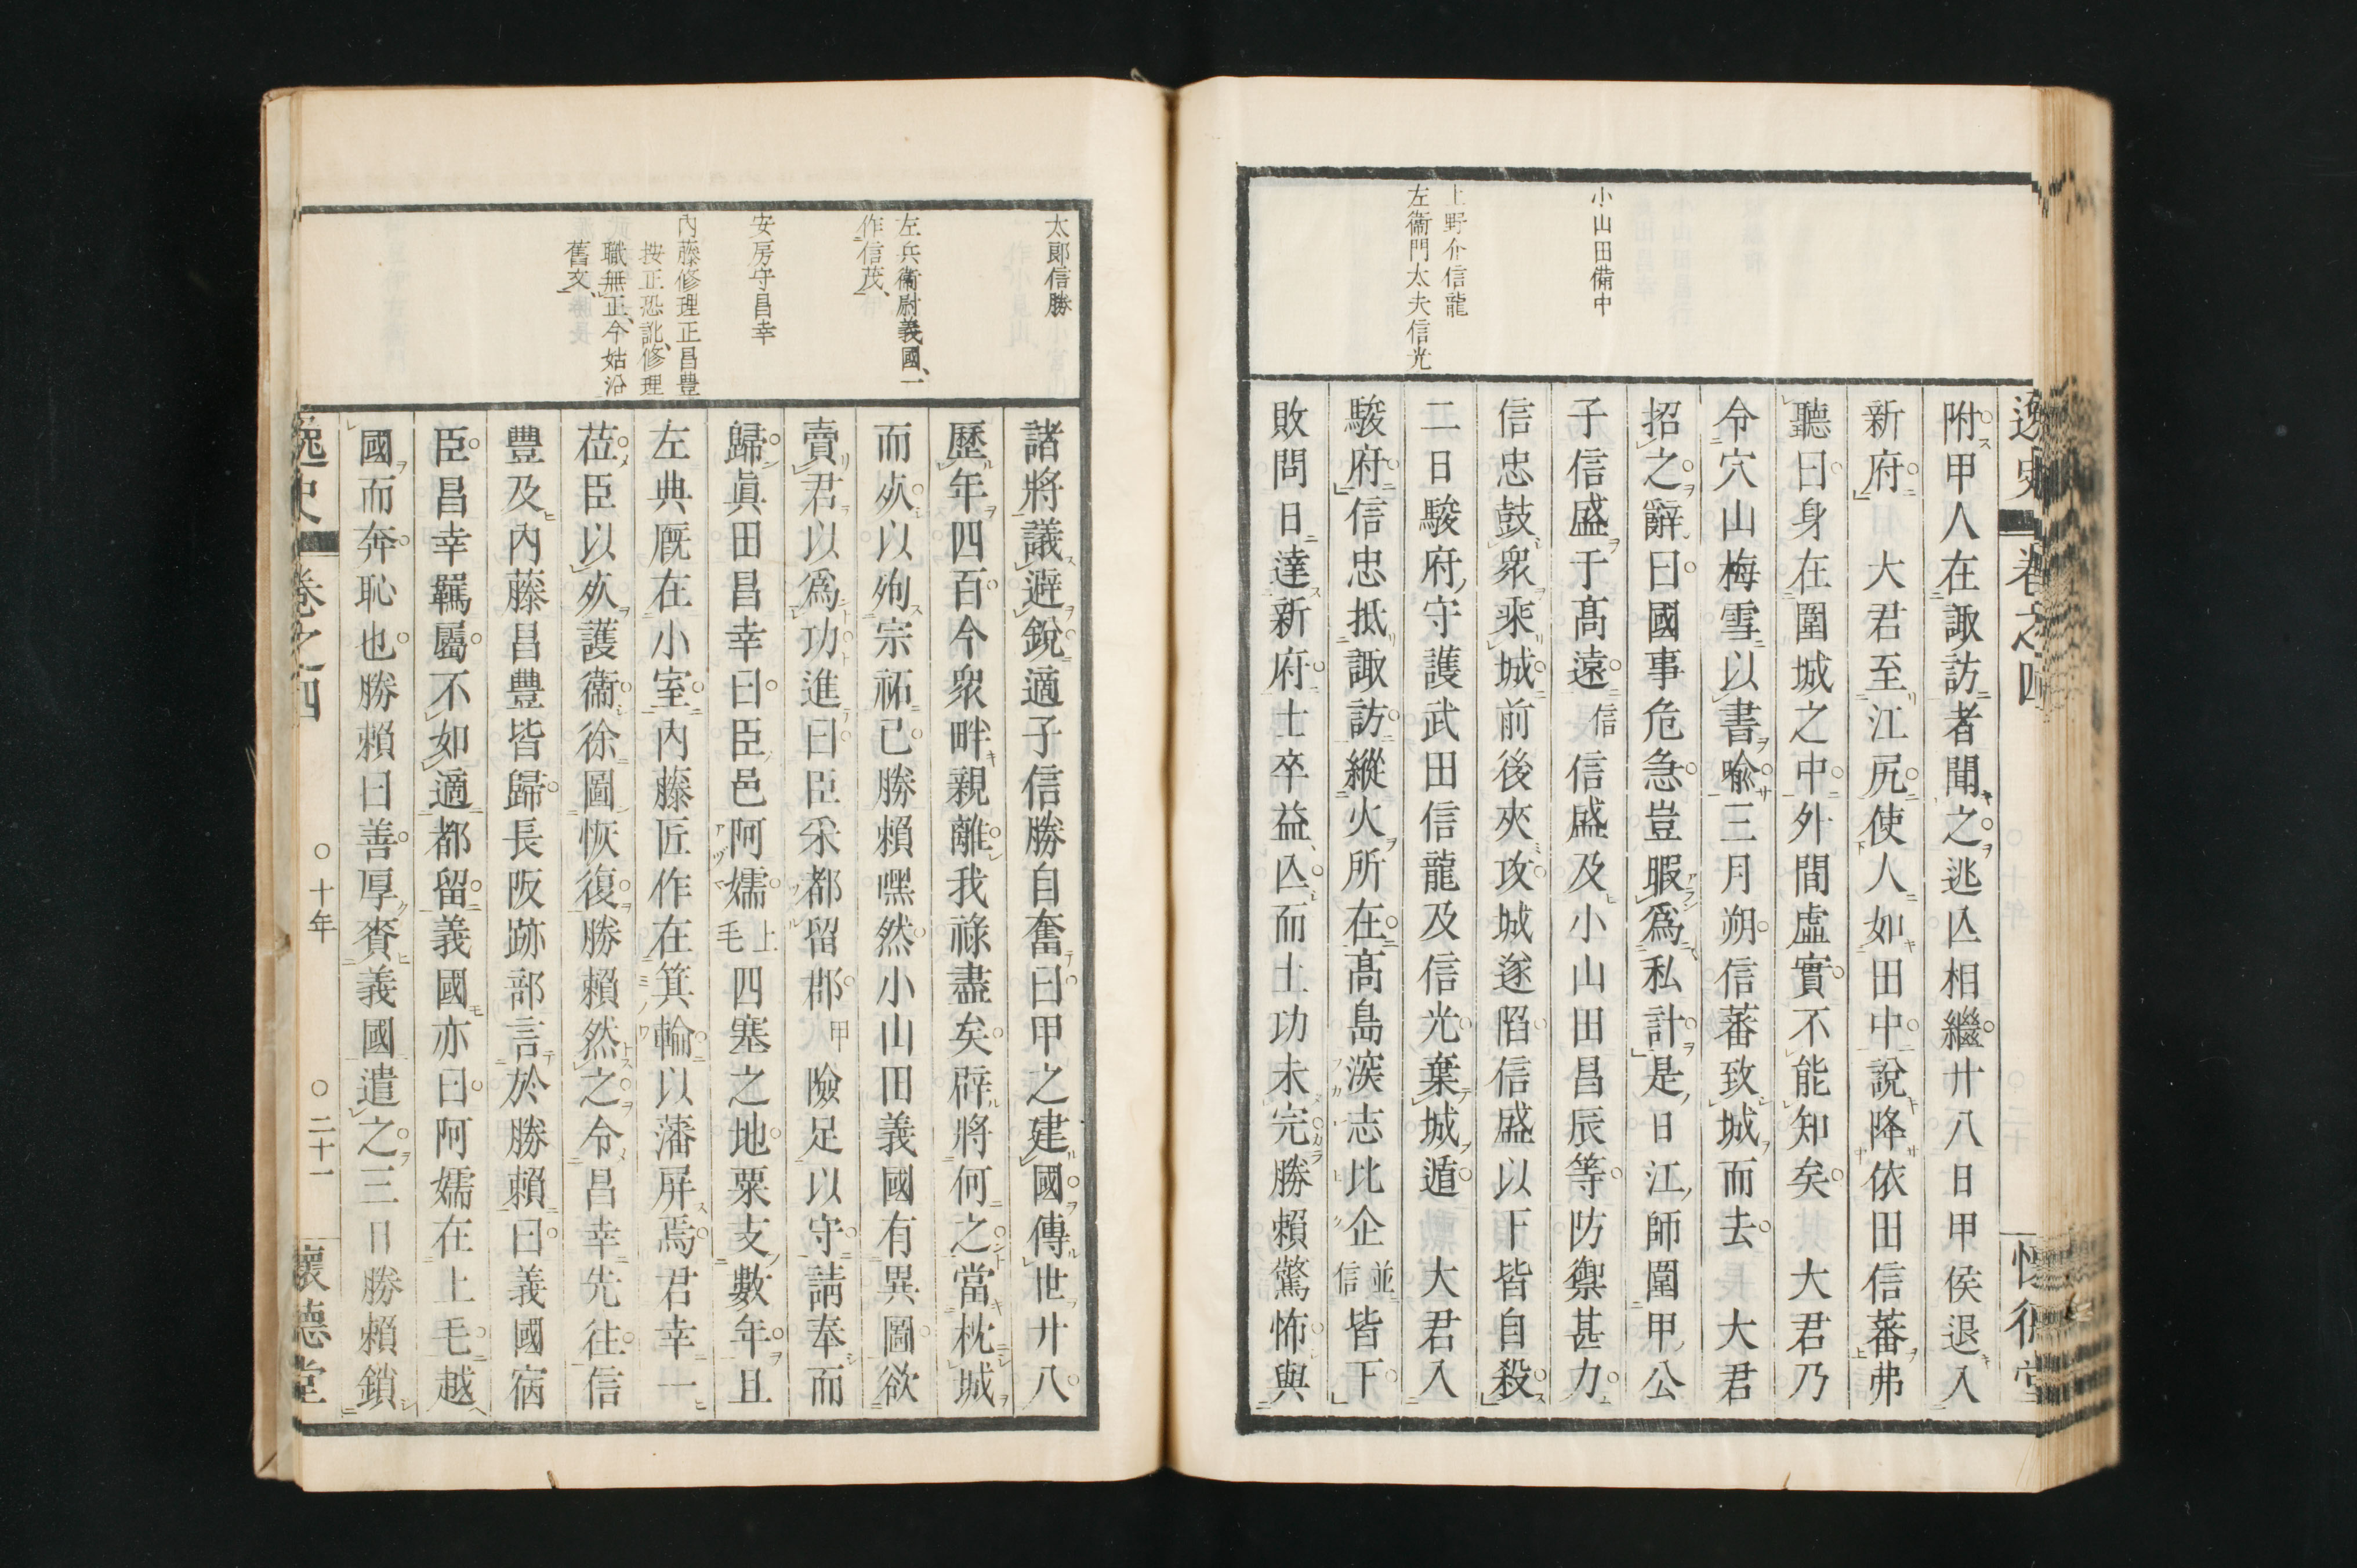 小山田備中
上野介信龍
左衞門太夫信光
附甲人在諏訪者聞之逃亾相繼廿八日甲侯退入
新府　大君至江尻使人如田中說降依田信蕃弗
聽曰身在圍城之中外間虛實不能知矣　大君乃
令穴山梅雪以書喩三月朔信蕃致城而去　大君
招之辭曰國事危急豈暇爲私計是日江師圍甲公
子信盛于高遠信信盛及小山田昌辰等防禦甚力
信忠鼓衆乘城前後夾攻城遂陷信盛以下皆自殺
二日駿府守護武田信龍及信光棄城遁　大君入
駿府信忠抵諏訪縱火所在高島深志比企並信皆下
敗問日達新府士卒益亾而土功未完勝賴驚怖與
太郞信勝
左兵衞尉義國、一
作信茂、
安房守昌幸
內藤修理正昌豊
按正恐訛、修理
職無正、今姑沿
舊文、
諸將議避銳適子信勝自奮曰甲之建國傳世廿八
歷年四百今衆畔親離我祿盡矣辟將何之當枕城
而死以殉宗祏已勝賴嘿然小山田義國有異圖欲
賣君以爲功進曰臣采都留郡甲險足以守請奉而
歸眞田昌幸曰臣邑阿嬬上毛四塞之地粟支數年且
左典厩在小室內藤匠作在箕輪以藩屏焉君幸一
莅臣以死護衞徐圖恢復勝賴然之令昌幸先往信
豐及內藤昌豐皆歸長阪跡部言於勝賴曰義國宿
臣昌幸羈屬不如適都留義國亦曰阿嬬在上毛越
國而奔恥也勝賴曰善厚賚義國遣之三日勝賴鎖
逸史　卷之四　○十年　○二十一　懷德堂